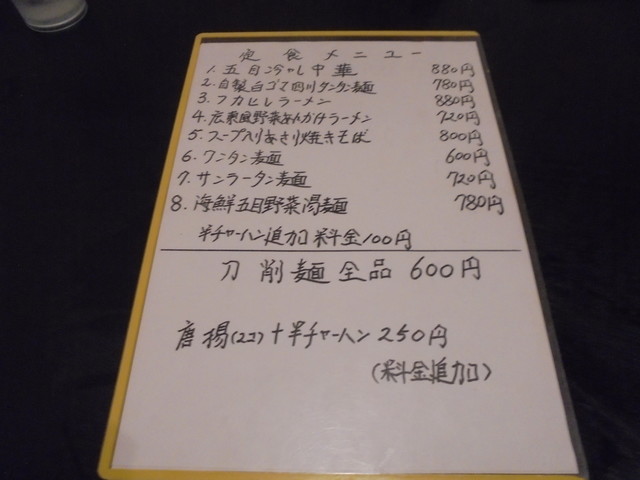 定食メニュー
1. 五目冷やし中華 880円
2. 自製白ゴマ四川タンタン麺 780円
3. フカヒレラーメン 880円
4. 広東風野菜あんかけラーメン 720円
5. スープ入りあさり焼きそば 800円
6. ワンタン麺 600円
7. サンラータン麺 720円
8. 海鮮五目野菜湯麺 780円
半チャーハン追加料金100円
刀削麺全品 600円
唐揚(2コ)+半チャーハン 250円
(料金追加)